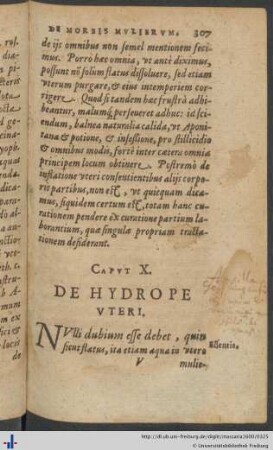 DE MORBIS MVLIERVM. 307
de ijs omnibus non semel mentionem feci-
mus. Porro hæc omnia, vt antè diximus,
possunt nō solùm flatus dissoluere, sed etiam
vterum purgare, & eius intemperiem cor-
rigere. Quod si tandem hæc frustrà adhi-
beantur, malumq́; perseueret adhuc: ia sci-
endum, balnea naturalia calida, vt Aponi-
tana & potione, & infessione, pro stillicidio
& omnibus modis, fortè inter cætera omnia
principem locum obtinere. Postremò de
inflatione vteri consentientibus alijs corpo-
ris partibus, non est, vt quicquam dica-
mus, siquidem certum est, totam hanc cu-
rationem pendere ex curatione partium la-
borantium, quæ singulæ propriam tracta-
tionem desiderant.
CAPVT X.
DE HYDROPE
VTERI.
NVlli dubium esse debet, quin
sicut flatus, ita etiam aqua in vtero
Essentia.
V mulie-
http://dl.ub.uni-freiburg.de/diglit/massaria1600/0325
© Universitätsbibliothek Freiburg